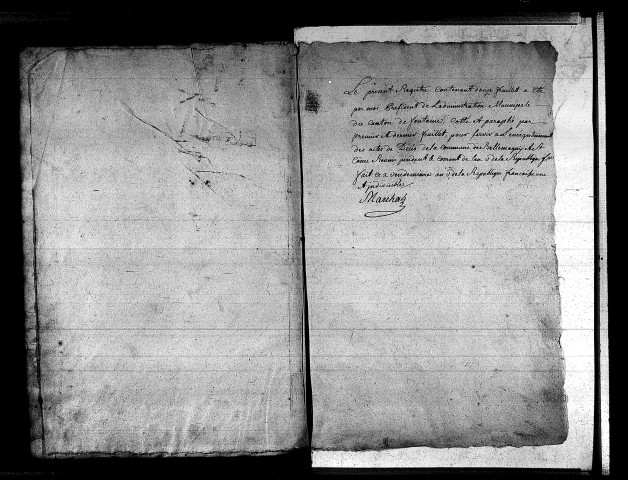 Le present Registre contenant douze feuillet a été
par moi President de Ladministration Municipale
du canton de fontaine, Cotté et paraphé par
premier et dernier feuillet, pour servir a L'enregistrement
des actes de Décès de la Commune de Bellemagny & St
Come Reunis pendant le courant de lan 5e de la Republique
fait ce vendemiaire an 5e de la Republique francoise une
et indivisible
Marchal